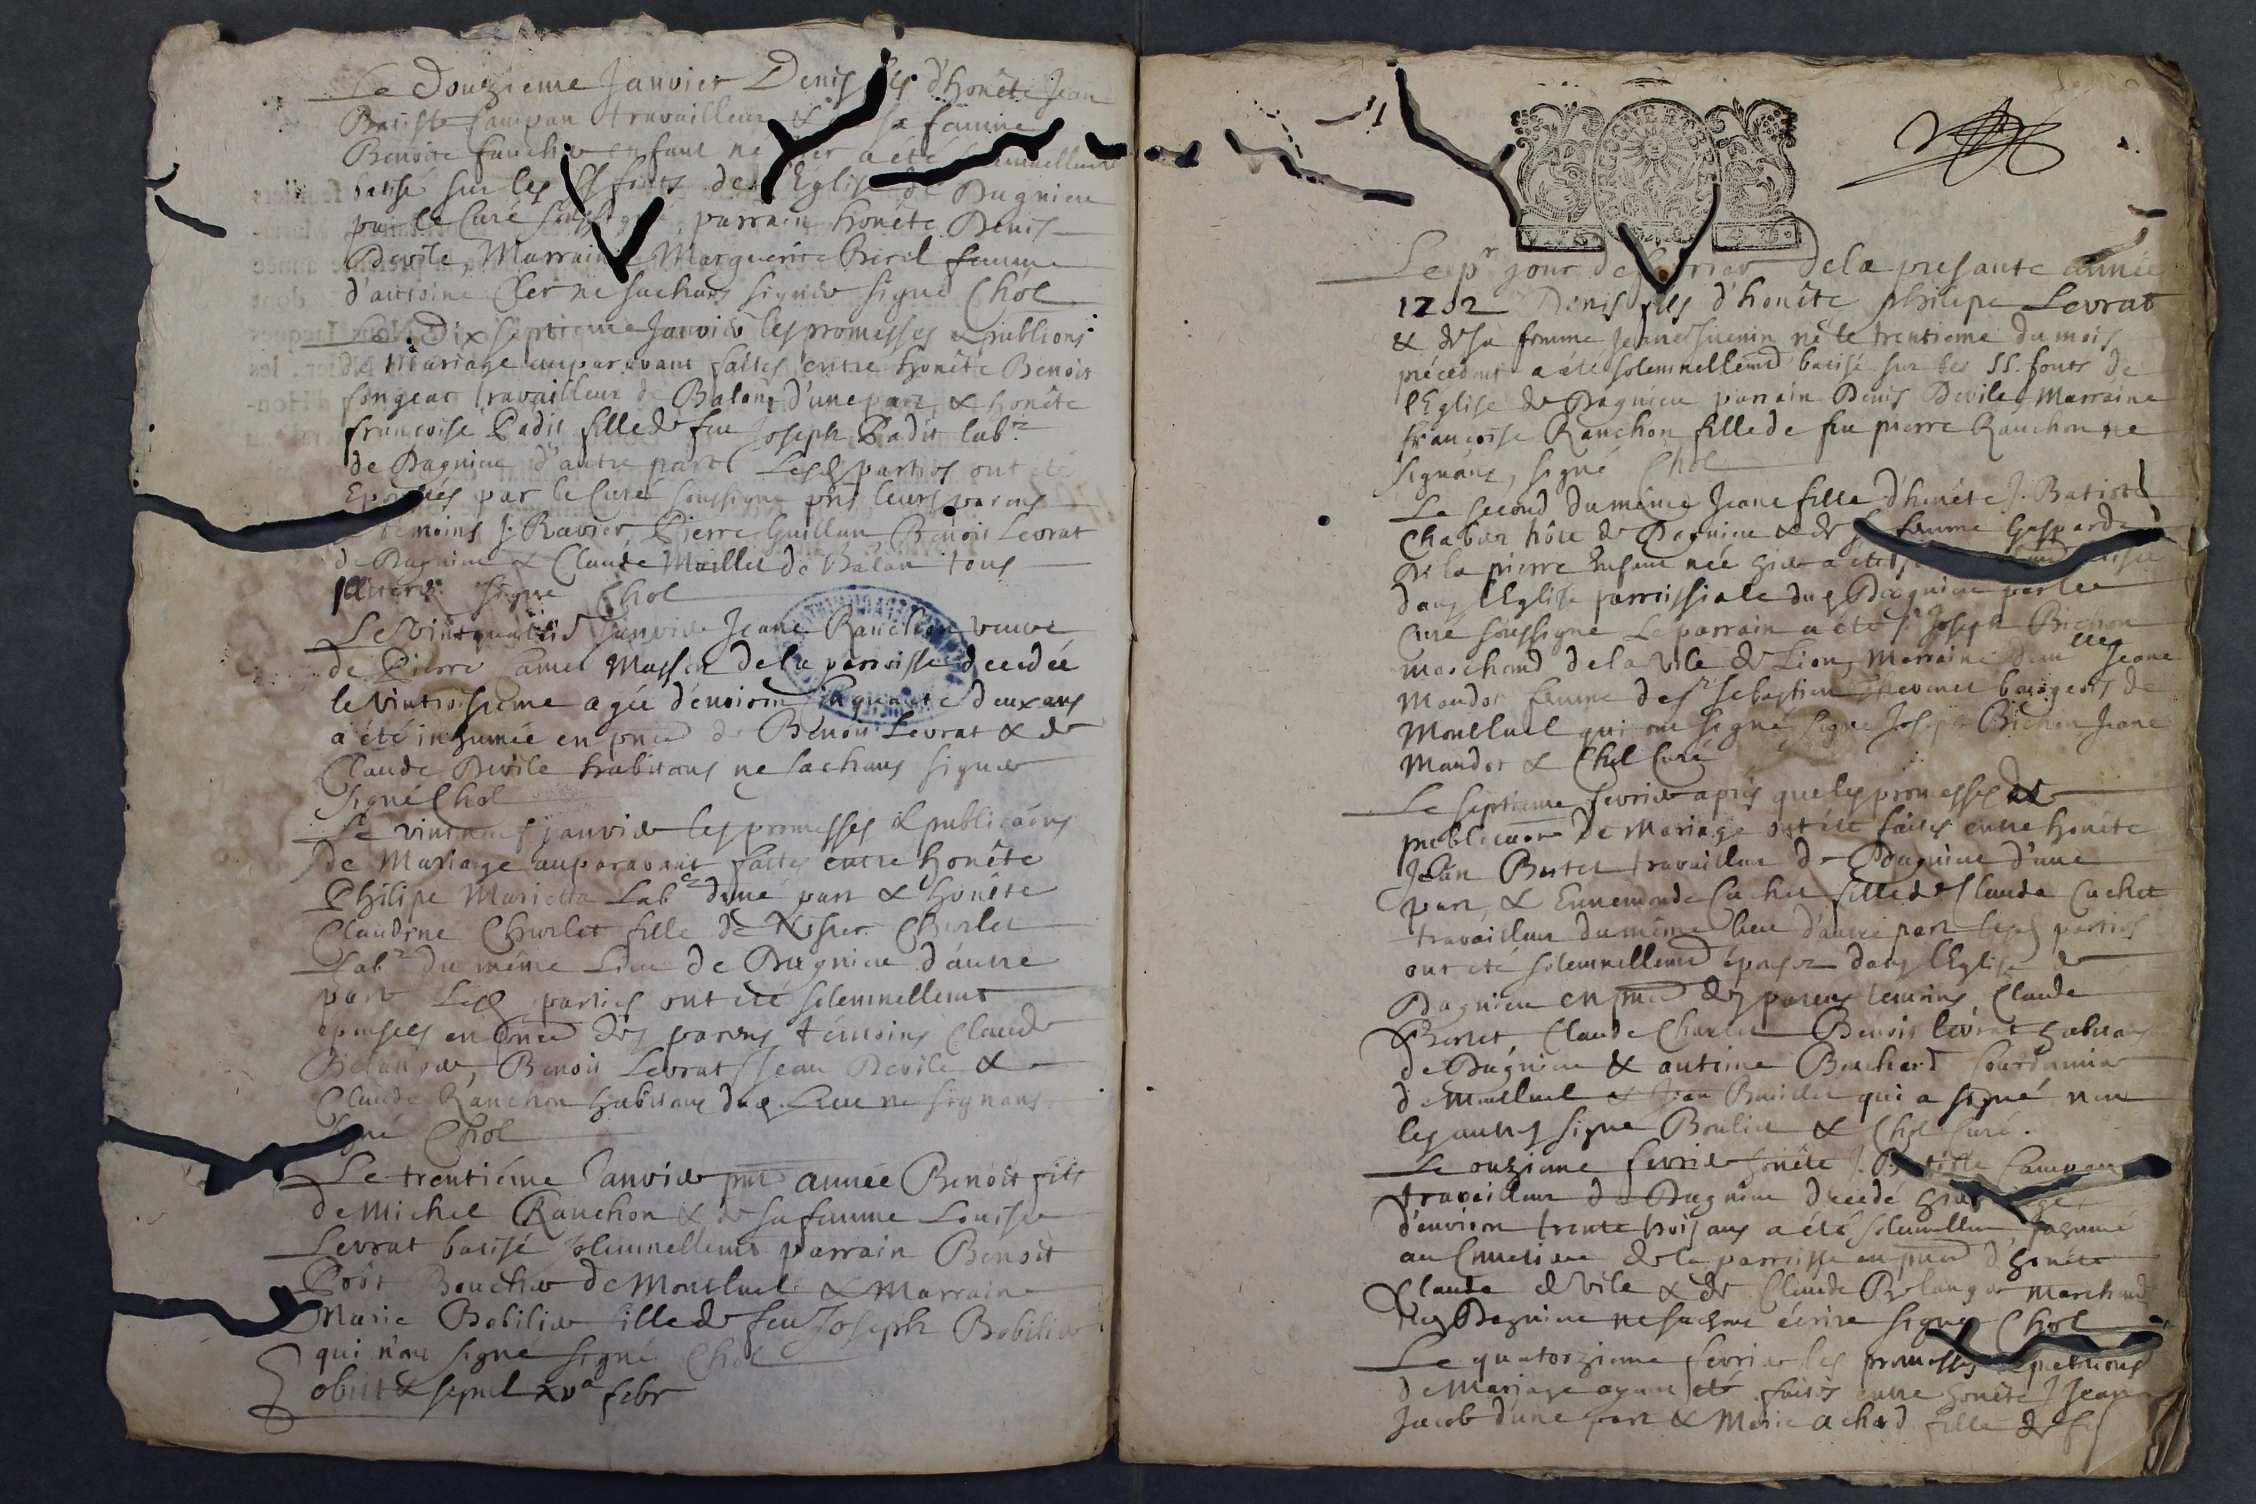 Le Douzieme Janvier Denis fils d'honête Jean
Batiste Campan travailleur & sa famme
Benoite fauchie enfant né hier a été solemnellemt
batisé sur les SS fonts de l'Eglise de Dagnieu
par le Curé soussigné, parrain honéte Denis
Devile, Marraine Marguerite femme
d'antoine Cler ne sachans signer signé Chol
Le Dix septieme Janvier les promesses & publions
de Mariage auparavant faites entre honête Benoit
fongeat travailleur de Balon d'une part, & honête
françoise Padit fille de feu Joseph Padit labr
de Dagnieu d'autre part Lesd parties ont été
Epousés par le Curé soussigné pnt leurs parens
temoins J. Ravier, Pierre Guillan Benoit Levrat
de Dagnieu & Claude Maillet de Balan tous
signé Chol
Le Vintquatrié Janvier Jeane Ranchon veuve
de Pierre Masson de la parroisse decedée
le vintroisieme agée d'environ cinquante deux ans
a été inhumée en pnce de Benoit Levrat & de
Claude Devile habitans ne sachans signer
signé Chol
Le vintneuf janvier les promesses & publicaons
de Mariage auparavant faites entre honête
Philipe Marietta Labr d'une part & honête
Claudine Charlet fille de Charlet
Labr du même Lieu de Dagnieu d'autre
part Lesd parties ont été solemnellemt
epousees en pnce des parens témoins Claude
Belanger, Benoit Levrat Jean Devile &
Claude Ranchon habitans dud. Lieu ne signans
signé Chol
Le trentiéme Janvier pnte année Benoit fils
de Michel Ranchon & de sa famme Louise
Levrat batisé solemnellemt parrain Benoit
Poit Boucher de Montluel & Marraine
Marie Bobilier fille de feu Joseph Bobilier
qui n'ont signé signé Chol
obiit & sepul xva febr
Le pr jour de fevrier de la presante année
1702 Denis fils d'honête philipe Levrat
& de sa femme Jeane né le trentieme du mois
précédent a été solemnellemt batisé sur les SS. fonts de
l'Eglise de Dagnieu parrain Denis Devile, Marraine
françoise Ranchon fille de feu pierre Ranchon ne
signans, signé Chol
Le second du même Jeane fille d'honête J. Batiste
Chaban hôte de Dagnieu & de sa famme Gasparde
De la pierre Enfant née hier a été batisée
dans l'Eglise parroissiale dud Dagnieu par le
Curé soussigné Le parrain a été sr Joseph Bichon
marchand de la vile de Lion, Marraine demlle Jeane
Mandot famme de sr Sebastien bourgeois de
Montluel qui ont signé, signé Joseph Bichon Jeane
Mandot & Chol Curé
Le septieme fevrier après que les promesses et
publicaon de Mariage ont été faites entre honête
Jean Bertet travailleur de Dagnieu d'une
part, & Ennemonde Cachet fille de Claude Cachet
travailleur du même lieu d'autre part lesd parties
ont été solemnellemt épousez dans l'Eglise de
Dagnieu en pnce des parens temoins, Claude
Bertet, Claude Charlet Benoit levrat habitans
de Dagnieu & antoine Bouchard Cordonnier
de Montluel & Jean qui a signé non
les autres signé Boulier & Chol Curé.
Le onzieme fevrier honête J. Batiste Campan
travailleur de Dagnieu decedé hier agé
d'environ trente trois ans a été solemnellemt inhumé
au Cimetiere de la parroisse en pnce d'honête
Claude devile & de Claude Belanger Marchand
de Dagnieu ne sachant écrire signé Chol
Le quatorzieme fevrier les promesses & publions
de Mariage ayant été faites entre honête J Jean
Jacob d'une part & Marie achard fille de